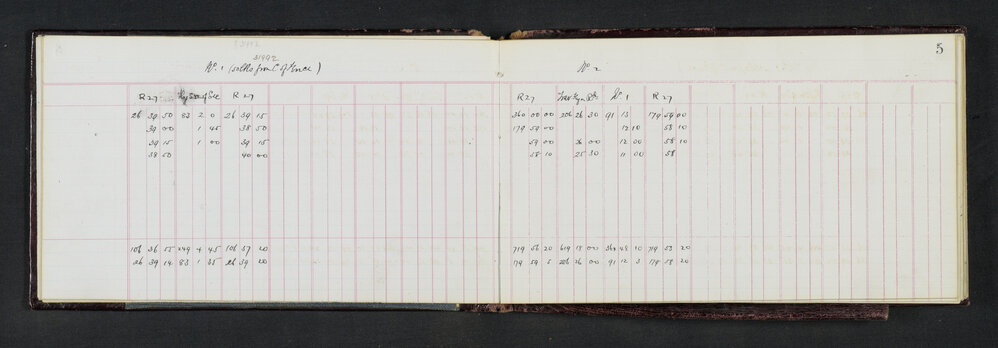 5
31992
No. 1 (
No 2
R 27 R 27
R 27 No. 1 R 27
26 39 50 83 2 0 26 39 15
39 00 1 45 38 50
39 15 1 00 39 15
38 50 40 00
360 00 00 206 26 30 91 13 179 59 00
179 59 00 12 10 58 10
59 00 26 00 12 00 58 10
58 10 25 30 11 00 58
106 36 55 249 4 45 106 37 20
26 39 14 83 1 35 26 39 20
719 56 20 619 18 00 364 48 10 719 53 20
179 59 5 206 26 00 91 12 3 179 58 20